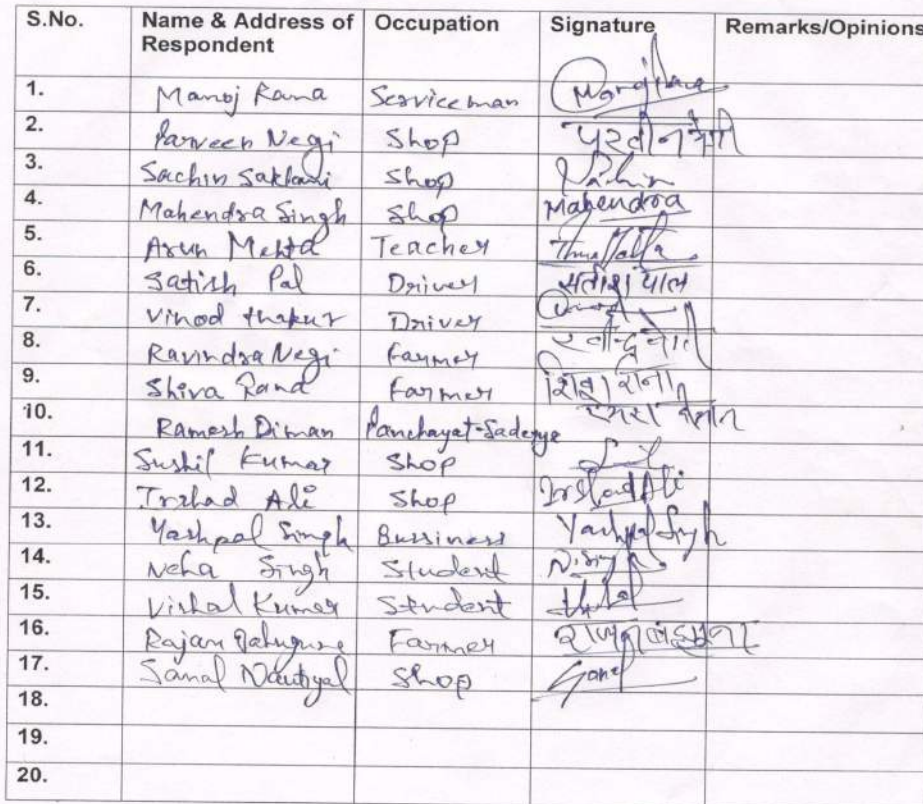 S.No. Name & Address of Respondent Occupation Signature Remarks/Opinions
1. Manoj Rana Serviceman Manoj Rana
2. Parveen Negi Shop परवीन नेगी
3. Sachin Saklani Shop Sachin
4. Mahendra Singh Shop Mahendra
5. Arun Mehta Teacher
6. Satish Pal Driver सतीश पाल
7. Vinod thakur Driver Vinod
8. Ravindra Negi Farmer
9. Shiva Rana Farmer राना
10. Ramesh Diman Panchayat-Sadesye
11. Sushil Kumar Shop
12. Irshad Ali Shop Irshad Ali
13. Yashpal Singh Bussiness Yashpal Singh
14. Neha Singh Student
15. Vishal Kumar Student
16. Rajan Farmer
17. Sanal Nautiyal Shop
18.
19.
20.